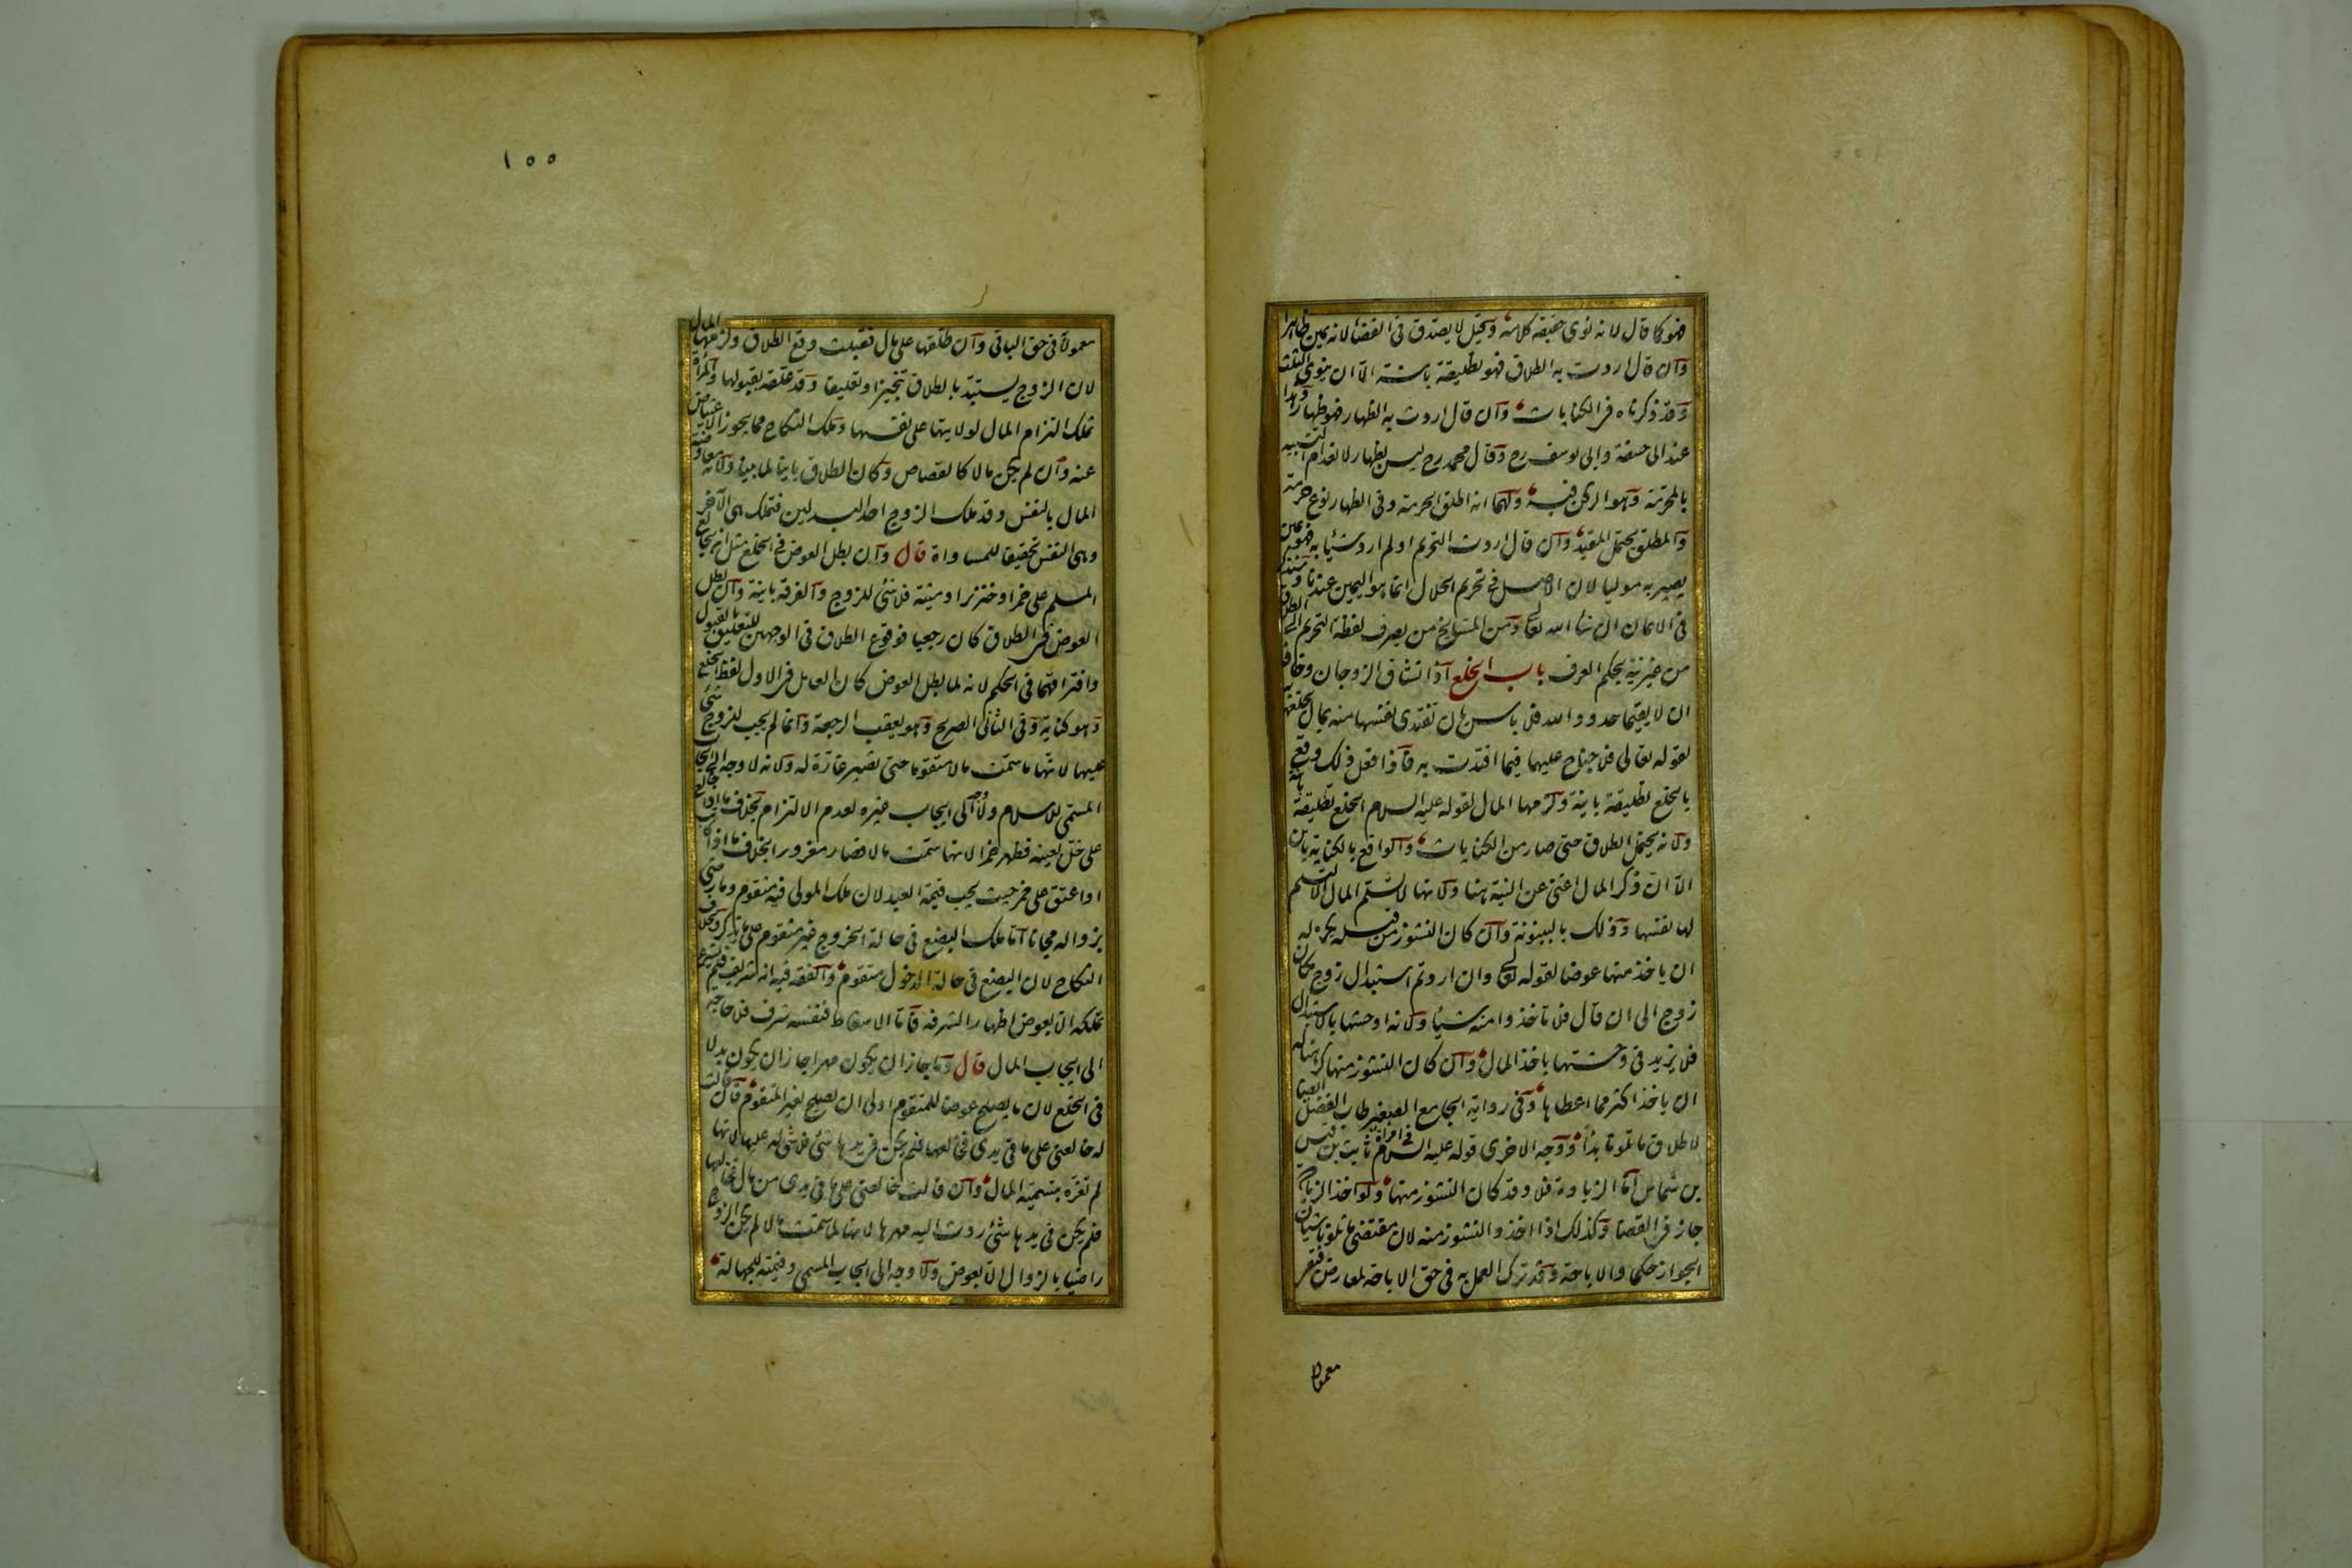 فهو كما قال لانه نوى حقيقة كلامه وقيل لا يصدق فى القضا لانه يمين ظاهرا
وان قال اردت به الطلاق فهو تطليقة باينة الا ان ينوى الثلث
وقد ذكرناه فى الكنايات وان قال اردت به الظهار فهو ظهار وهذا
عند ابى حنيفة وابى يوسف رح وقال محمد رح ليس بظهار لانعدام التشبيه
بالمحرمة وهو الركن فيه ولهما انه اطلق الحرمة وفى الظهار نوع حرمة
والمطلق يحتمل المقيد وان قال اردت التحريم او لم ارد شيئا به فهو يمين
يصير به موليا لان الاصل فى تحريم الحلال انما هو اليمين عندنا وسنذكره
فى الايمان ان شاء الله تعالى ومن المشايخ من يصرف لفظة التحريم الى الطلاق
من غير نية بحكم العرف باب الخلع اذا تشاق الزوجان وخافا
ان لا يقيما حدود الله فلا باس بان تفتدى نفسها منه بمال يخلعها به
لقوله تعالى فلا جناح عليهما فيما افتدت به فاذا فعل ذلك وقع
بالخلع تطليقة باينة ولزمها المال لقوله عليه السلام الخلع تطليقة باينة
ولانه يحتمل الطلاق حتى صار من الكنايات والواقع بالكناية باين
الا ان ذكر المال اغنى عن النية هنا ولانها لا تسلم المال الا لتسلم
لها نفسها وذلك بالبينونة وان كان النشوز من قبله يكره له
ان ياخذ منها عوضا لقوله تعالى وان اردتم استبدال زوج مكان
زوج الى ان قال فلا تاخذوا منه شيئا ولانه اوحشها بالاستبدال
فلا يزيد فى وحشتها باخذ المال وان كان النشوز منها كرهنا له
ان ياخذ اكثر مما اعطاها وفى رواية الجامع الصغير طاب الفضل ايضا
لاطلاق ما تلونا بدأ ووجه الاخرى قوله عليه السلام فى امراة ثابت بن قيس
بن شماس اما الزيادة فلا وقد كان النشوز منها ولو اخذ الزيادة
جاز فى القضا وكذلك اذا اخذ والنشوز منه لان مقتضى ما تلونا شيئان
الجواز حكما والاباحة وقد ترك العمل به فى حق الاباحة لمعارض فبقى
معمولا
١٥٥
معمولا فى حق الباقى وان طلقها على مال فقبلت وقع الطلاق ولزمها المال
لان الزوج يستبد بالطلاق تنجيزا وتعليقا وقد علقه بقبولها والمراة
تملك التزام المال لولايتها على نفسها وملك النكاح مما يجوز الاعتياض
عنه وان لم يكن مالا كالقصاص وكان الطلاق باينا لما بينا ولانه معاوضة
المال بالنفس وقد ملك الزوج احد البدلين فتملك هى الاخر
وهى النفس تحقيقا للمساواة قال وان بطل العوض فى الخلع مثل ان يخالع
المسلم على خمر او خنزير او ميتة فلا شئ للزوج والفرقة باينة وان بطل
العوض فى الطلاق كان رجعيا فوقوع الطلاق فى الوجهين للتعليق بالقبول
وافتراقهما فى الحكم لانه لما بطل العوض كان العامل فى الاول لفظ الخلع
وهو كناية وفى الثانى الصريح وهو يعقب الرجعة وانما لم يجب للزوج شئ
عليها لانها ما سمت مالا متقوما حتى تصير غارة له ولانه لا وجه الى ايجاب
المسمى للاسلام ولا وجه الى ايجاب غيره لعدم الالتزام بخلاف ما اذا خالع
على خل بعينه فظهر خمر لانها سمت مالا فصار مغرورا بخلاف ما اذا كاتب
او اعتق على خمر حيث يجب قيمة العبد لان ملك المولى فيه متقوم وما رضى
بزواله مجانا اما ملك البضع فى حالة الخروج غير متقوم على ما نذكر وبخلاف
النكاح لان البضع فى حالة الدخول متقوم والفقه فيه انه شريف فلم يشرع
تملكه الا بعوض اظهارا لشرفه فاما الاسقاط فنفسه شرف فلا حاجة
الى ايجاب المال قال وما جاز ان يكون مهرا جاز ان يكون بدلا
فى الخلع لان ما يصلح عوضا للمتقوم اولى ان يصلح لغير المتقوم فان قالت
له خالعنى على ما فى يدى فخالعها فلم يكن فى يدها شئ فلا شئ له عليها لانها
لم تغره بتسمية المال وان قالت خالعنى على ما فى يدى من مال فخالعها
فلم يكن فى يدها شئ ردت اليه مهرها لانها لما سمت مالا لم يكن الزوج
راضيا بالزوال الا بعوض ولا وجه الى ايجاب المسمى وقيمته للجهالة